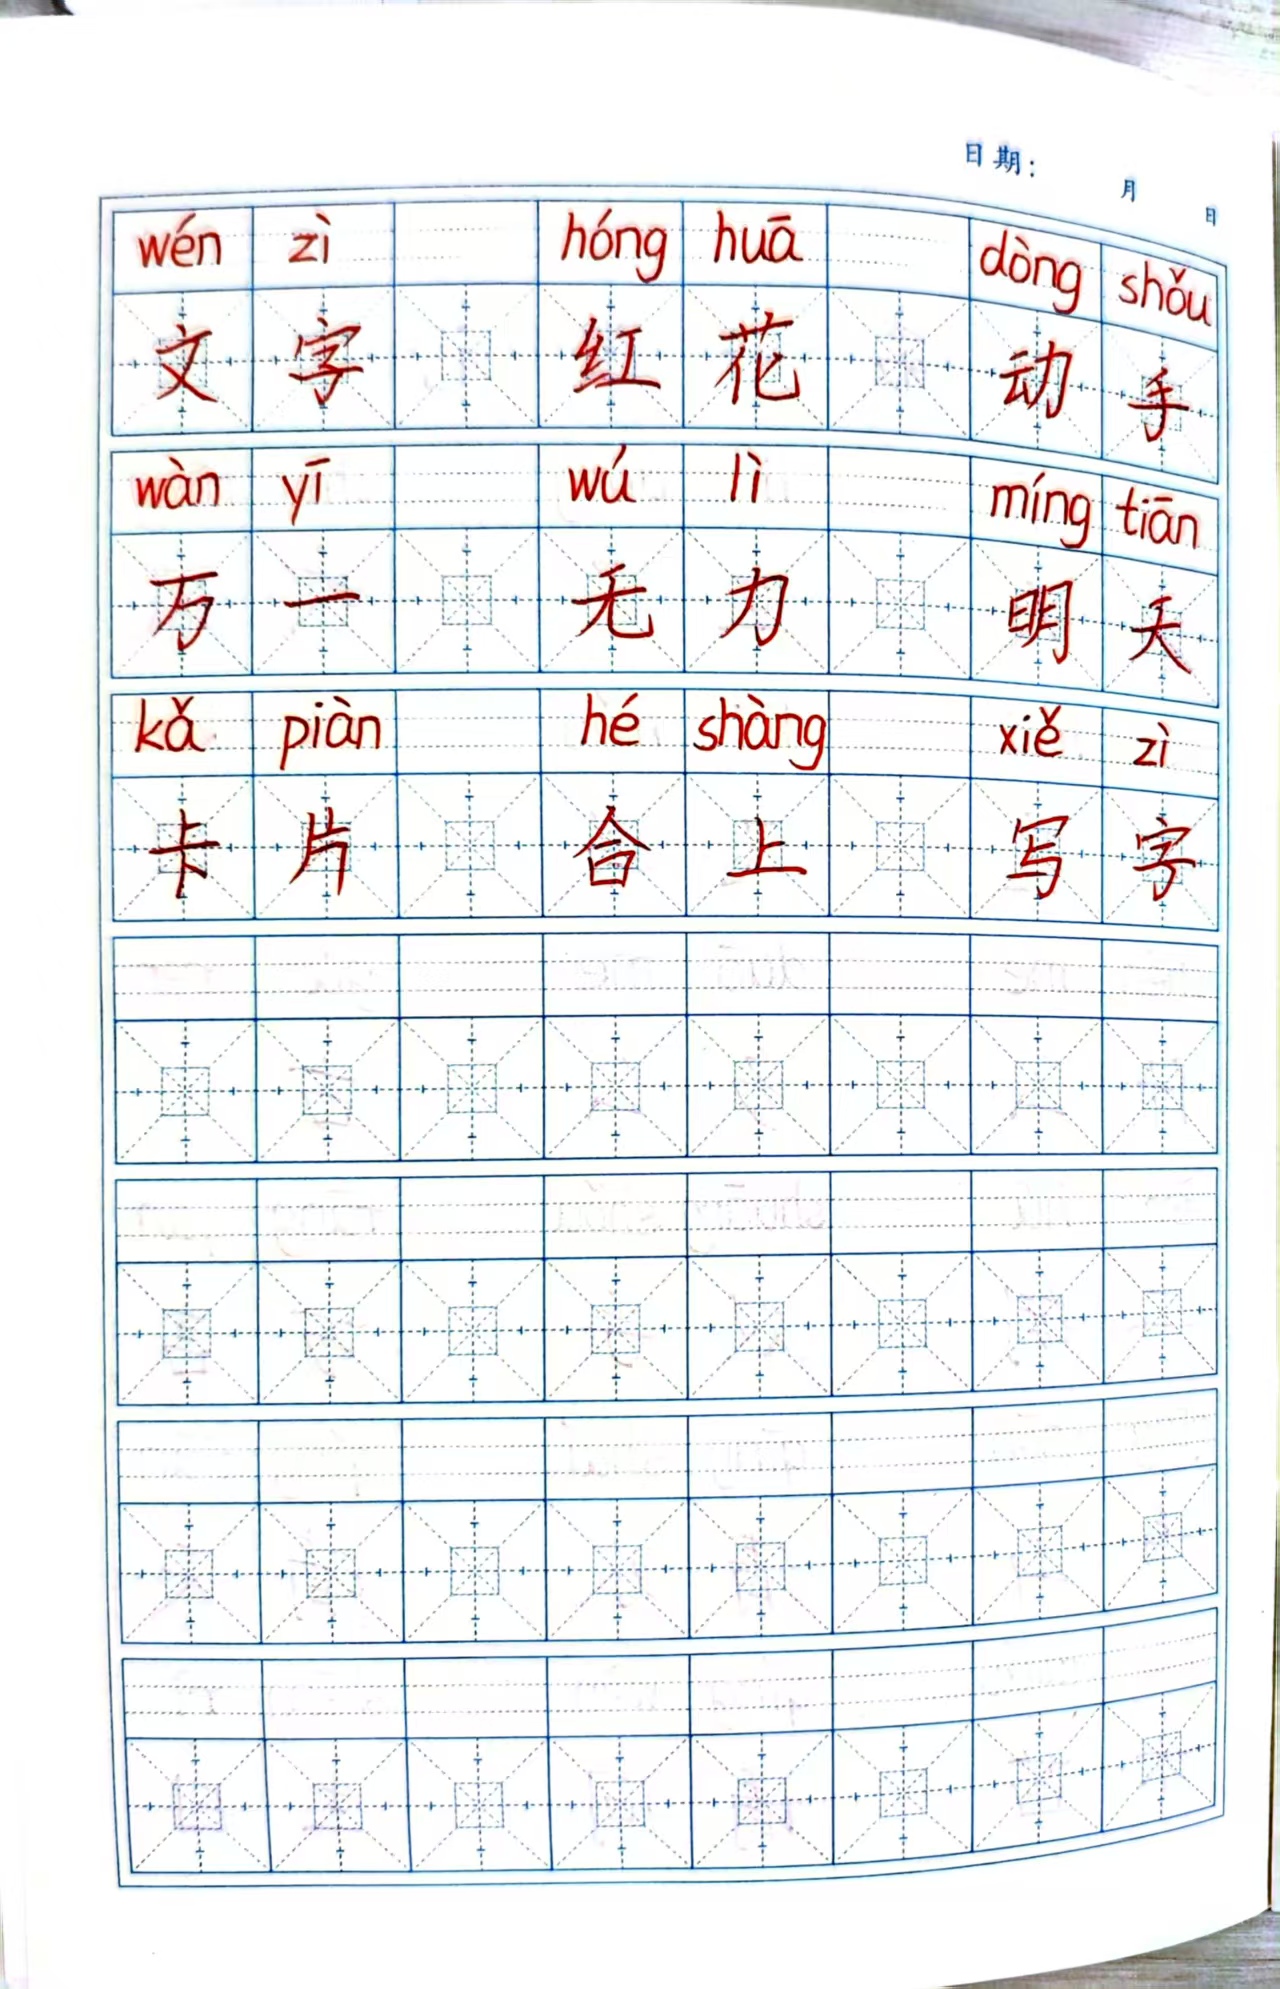 日期： 月 日
wén zì hóng huā dòng shǒu
文字 红花 动手
wàn yī wú lì míng tiān
万一 无力 明天
kǎ piàn hé shàng xiě zì
卡片 合上 写字